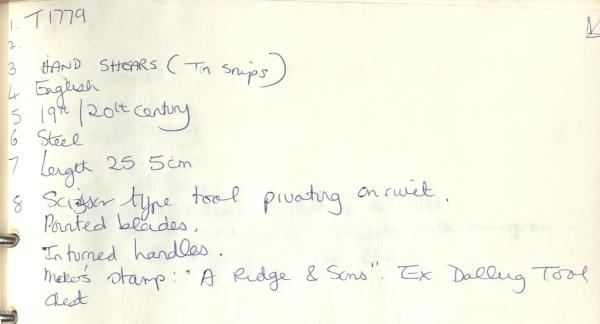 1. T1779
2.
3 HAND SHEARS (Tin Snips)
4 English
5 19th/20th Century
6 Steel
7 Length 25.5cm
8 Scissor type tool pivoting on rivet.
Pointed blades.
Inturned handles.
Maker's stamp: "A Ridge & Sons". Ex Tool
chest